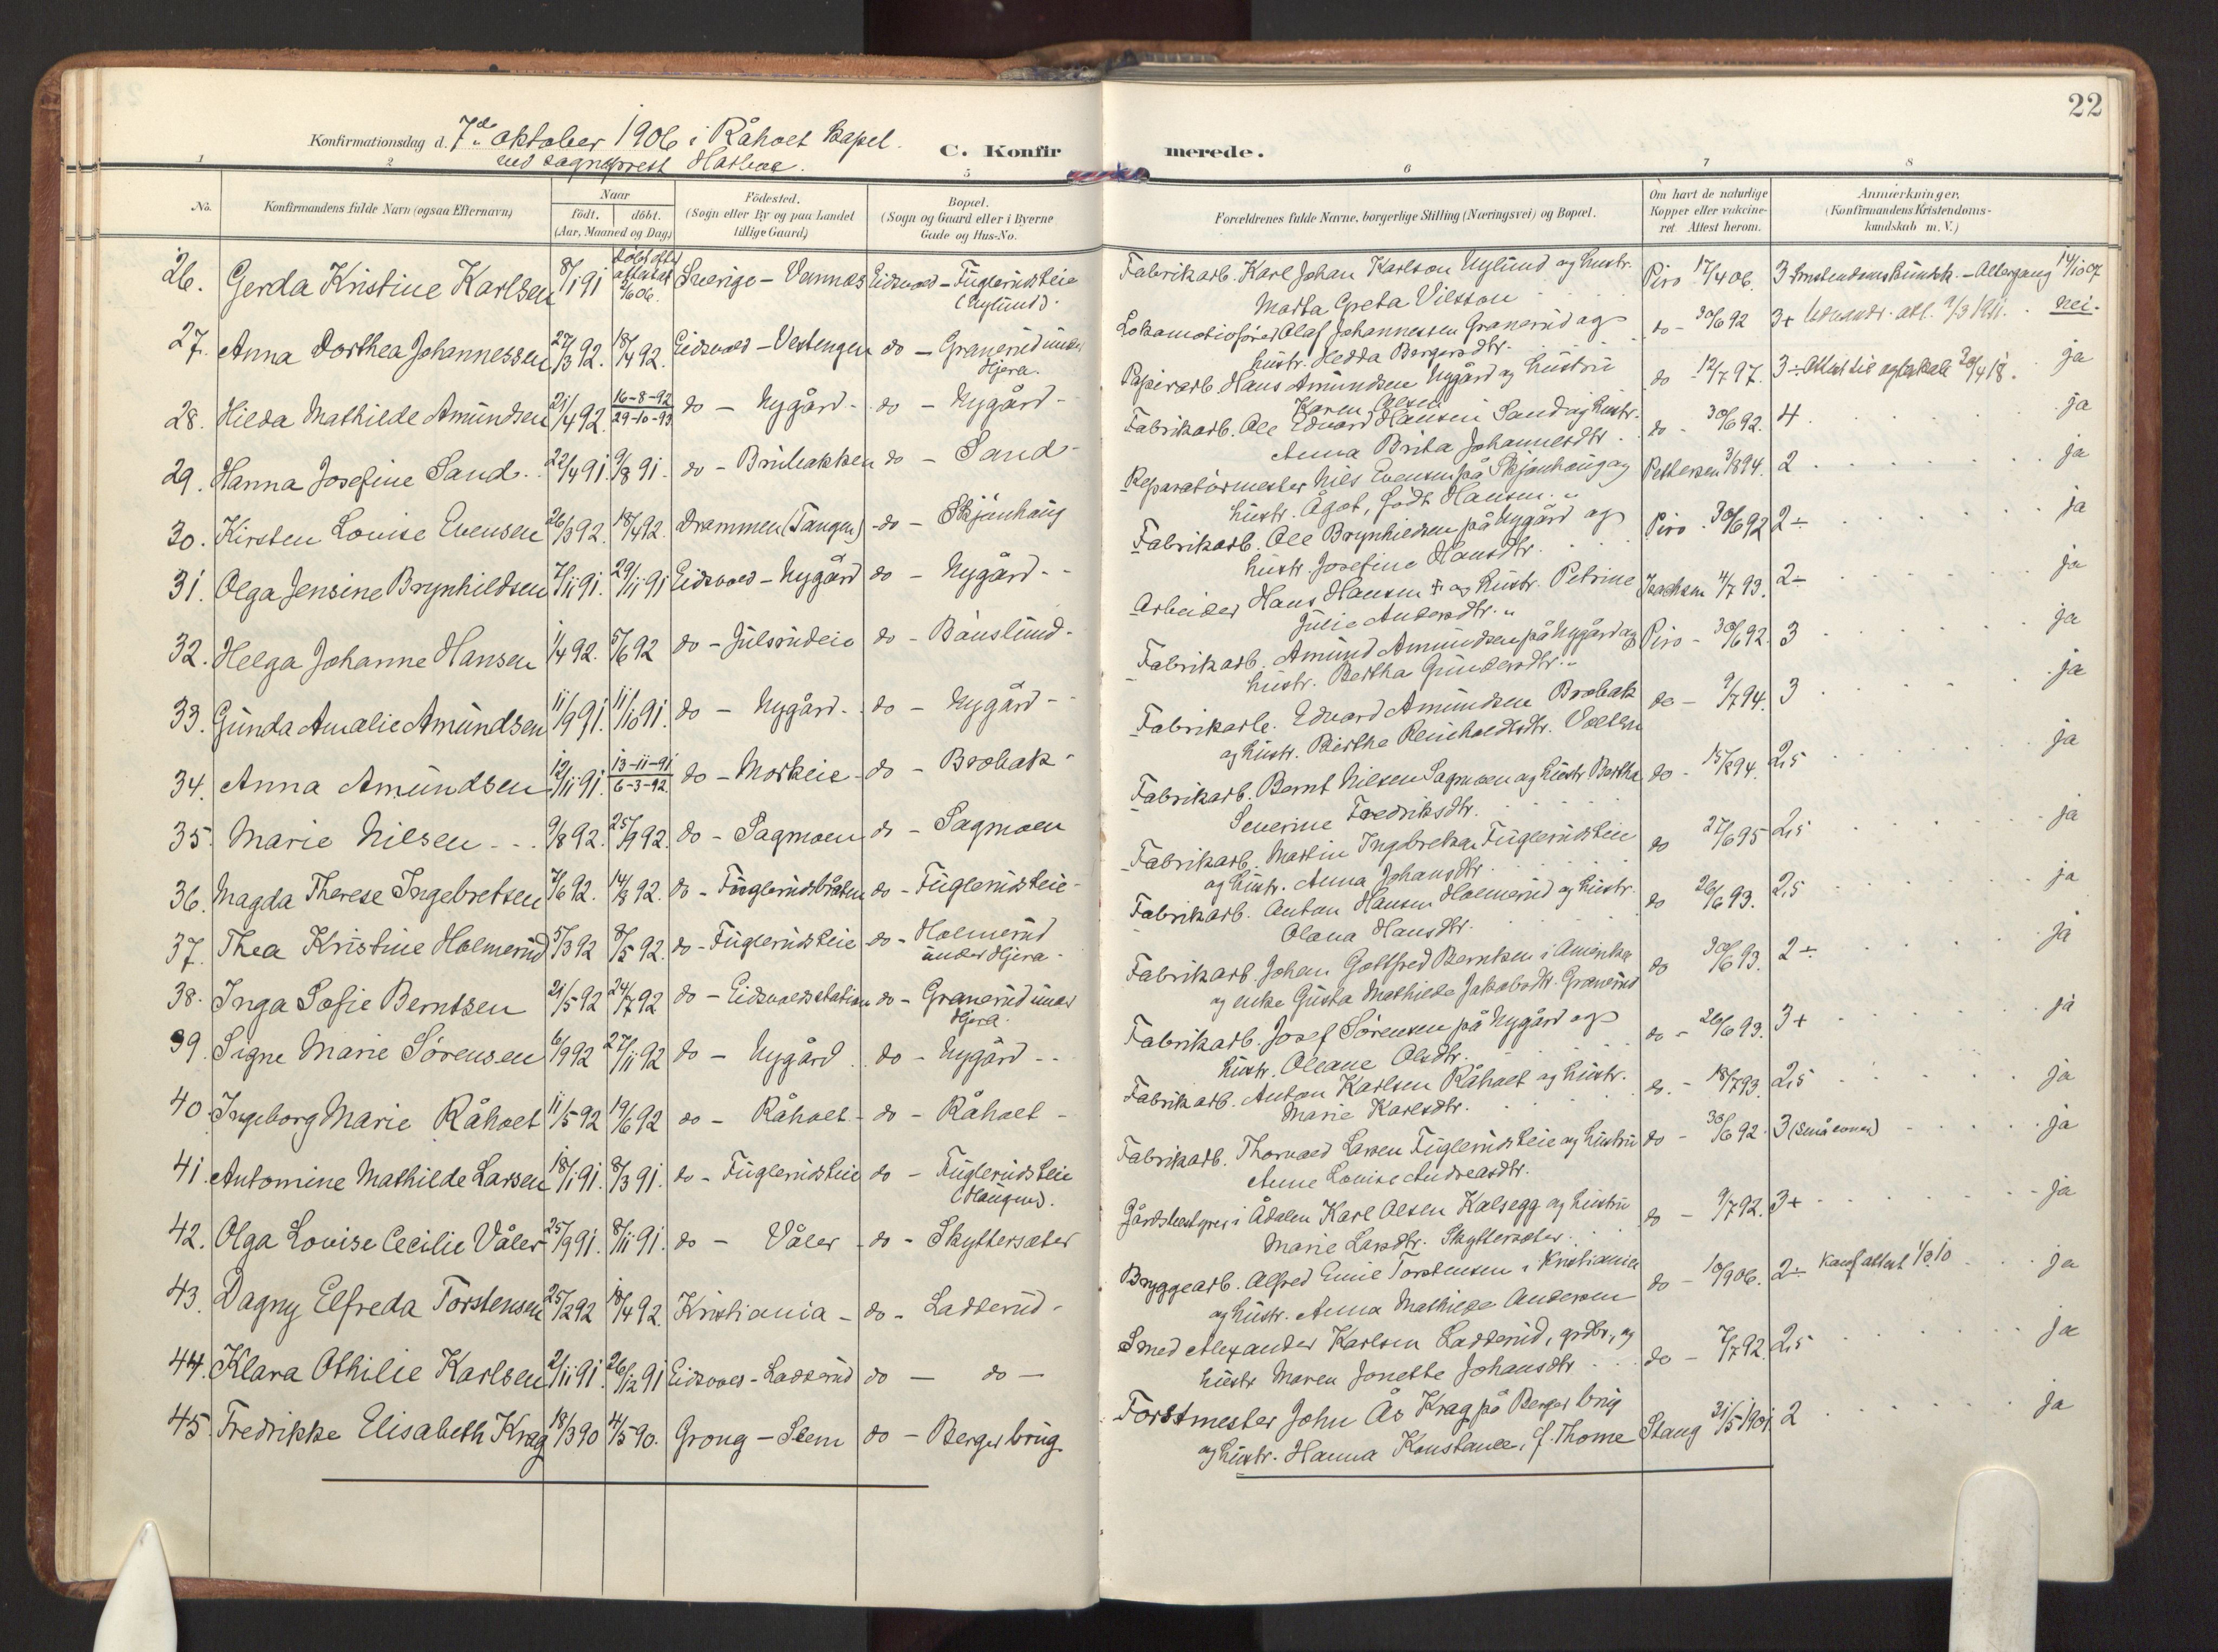 22
Konfirmationsdag d. 7de oktober 1906 i Råholt kapel.
ved sogneprest
C. Konfirmerede.
1 2 5 6 7 8
No.
Konfirmandens fulde Navn (ogsaa Efternavn)
Naar
födt. döbt.
(Aar, Maaned og Dag.)
Födested.
(Sogn eller By og paa Landet
tillige Gaard)
Bopæl.
(Sogn og Gaard eller i Byerne
Gade og Hus-No.
Forældrenes fulde Navne, borgerlige Stilling (Næringsvei) og Bopæl.
Om havt de naturlige
Kopper eller vakcine-
ret. Attest herom.
Anmærkninger.
(Konfirmandens Kristendoms-
kundskab m. V.)
26. Gerda Kristine Karlsen 8/1 91 Sverige - Vennäs Eidsvold - Fuglerudseie
(Nylund).
Fabrikarb. Karl Johan Karlson Nylund og hustr.
Marta Greta Vilsson
Piro 17/4 06. 3 14/10 07
nei.
27. Anna Dorthea Johannessen 27/3 92. 18/4 92. Eidsvold - Vestengen do - Granerud under
Hjera.
Lokomotivfører Olaf Johannessen Granerud og
hustr. Hedda Bergersdtr.
do - 30/6 92 3+ 9/3 1911.
ja
28. Hilda Mathilde Amundsen 21/4 92. 16-8-92
29-10-93 do - Nygård - do - Nygård -
Papirarb. Hans Amundsen Nygård og hustru
Karen Olsen
do - 12/7 97. 3÷ 20/4 18.
ja
29. Hanna Josefine Sand. 22/4 91. 9/8 91. do - Brubakken do - Sand -
Fabrikarb. Ole Edvard Hansen Sand og hustr.
Anna Brita Johannesdtr.
do - 30/6 92. 4
ja
30. Kirsten Louise Evensen 26/3 92. 18/4 92. Drammen (Tangen) - do - Skjønhaug
Reparatørmester Nils Evensen på Skjønhaug og
hustr. Ågot, født Hansen.
Pettersen 3/8 94. 2
ja
31. Olga Jensine Brynhildsen 7/11 91. 29/11 91 Eidsvold - Nygård do - Nygård - -
Fabrikarb. Ole Brynhildsen på Nygård og
hustr. Josefine Hansdtr.
Piro - 30/6 92 2÷
ja
32. Helga Johanne Hansen 1/4 92. 5/6 92 do - Julsrudeie do - Bånslund -
Arbeider Hans Hansen + og hustr. Petrine
Julie Andersdtr.
Isachsen 4/7 93. 2÷
ja
33. Gunda Amalie Amundsen 11/9 91. 11/10 91. do - Nygård - do - Nygård -
Fabrikarb. Amund Amundsen på Nygård og
hustr. Bertha Gundersdtr.
Piro - 30/6 92. 3
ja
34. Anna Amundsen 12/11 91. 13-11-91
6-3-92. do - Morkeie - do - Brobak -
Fabrikarb. Edvard Amundsen Brobak
og hustr. Birthe Reinholdtsdtr.
do - 9/7 94. 3
ja
35. Marie Nilsen 9/8 92. 25/9 92. do - Sagmoen do - Sagmoen
Fabrikarb. Bernt Nilsen Sagmoen og hustr. Bertha
Severine Fredriksdtr.
do - 15/8 94. 2,5
ja
36. Magda Therese Ingebretsen 7/6 92. 14/8 92. do - Fuglerudsbråten do - Fuglerudseie -
Fabrikarb. Martin Ingebretsen Fuglerudseie
og hustr. Anna Johansdtr.
do 27/6 95 2,5
ja
37. Thea Kristine Holmerud 5/3 92 8/5 92. do - Fuglerudseie do - Holmerud
under Hjera -
Fabrikarb. Anton Hansen Holmerud og hustr.
Olava Hansdtr.
do 26/6 93. 2,5
ja
38. Inga Sofie Berntsen 21/5 92 24/7 92 do - Eidsvoldstation do - Granerud under
Hjera.
Fabrikarb. Johan Gottfred Berntsen i Amerika
og enke Gusta Mathilde Jakobsdtr. Granerud
do 30/6 93. 2÷
ja
39. Signe Marie Sørensen 6/9 92 27/11 92 do - Nygård do - Nygård - -
Fabrikarb. Josef Sørensen på Nygård og
hustr. Oleane Olsdtr.
do - 26/6 93. 3+
ja
40. Ingeborg Marie Råholt 11/5 92 19/6 92 do - Råholt - do - Råholt -
Fabrikarb. Anton Karlsen Råholt og hustr.
Marie Karlsdtr.
do. - 18/7 93. 2,5
ja
41. Antomine Mathilde Larsen 18/1 91. 8/3 91. do - Fuglerudseie do - Fuglerudseie
(Haugen).
Fabrikarb. Thorvald Larsen Fuglerudseie og hustru
Anne Louise Andreasdtr.
do - 30/6 92. 3
ja
42. Olga Louise Cecilie Våler 25/9 91. 8/11 91. do - Våler - do - Skyttersæter
Gårdsbestyrer i Ådalen Karl Olsen Kalsegg og hustru
Marie Larsdtr. Skyttersæter.
do - 9/7 92. 3+
ja
43. Dagny Elfreda Torstensen 25/2 92 18/4 92. Kristiania - do - Ladderud -
Bryggearb. Alfred Emil Torstensen i Kristiania
og hustr. Anna Mathilde Andersen
do - 10/9 06. 2÷ Konf attest 1/3 10
ja
44. Klara Othilie Karlsen 2/11 91. 26/12 91 Eidsvold - Ladderud do - do -
Smed Alexander Karlsen Ladderud, grdbr., og
hustr Maren Jonette Johansdtr
do - 7/7 92. 2,5
ja
45. Fredrikke Elisabeth Krag 18/3 90 4/5 90. Grong - Seem do - Berger brug.
Forstmester John Ås Krag på Berger brug
og hustr. Hanna Konstance, f. Thome
Stang 31/5 1901. 2
ja